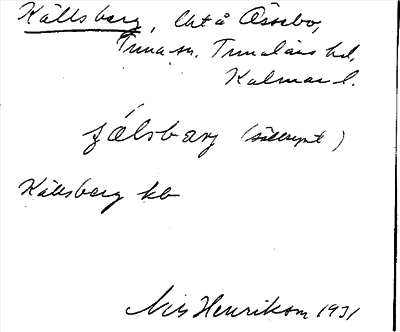 Källsberg, Ut å Össebo,
Tuna sn. Tunaläns hd,
Kalmar l.
fálsbarg (sällsynt)
Källsberg kb
Nils Henrikson 1931